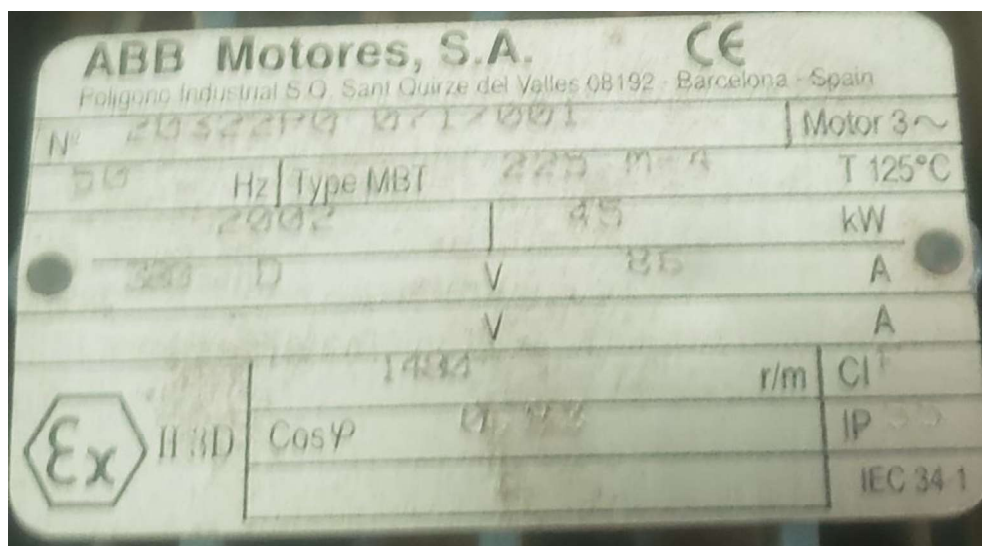 ABB Motores, S.A. CE
Poligono Industrial S.O. Sant Quirze del Valles 08192 - Barcelona - Spain
Nº Motor 3~
50 Hz Type MBT 225 M 4 T 125°C
2002 45 kW
D V 86 A
V A
r/m Cl F
Ex II 3D Cosφ IP 55
IEC 34-1